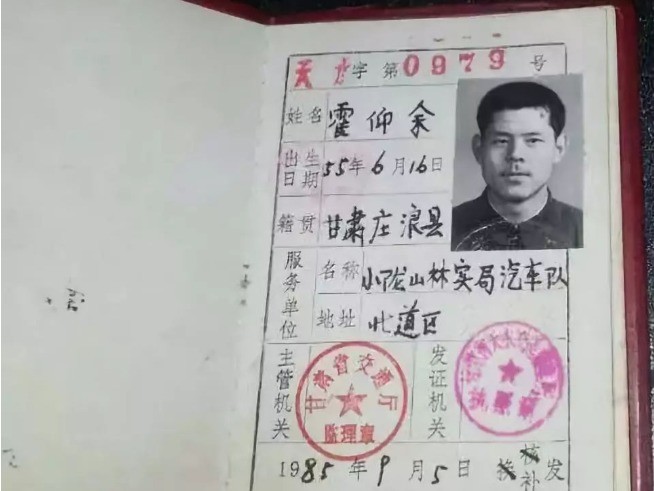 天 字 第 0979 号
姓名 霍仰余
出生日期 55年6月16日
籍贯 甘肃庄浪县
服务单位 名称 小陇山林实局汽车队
地址 北道区
主管机关 甘肃省交通厅 监理章
发证机关
1985年9月5日 换 补 发